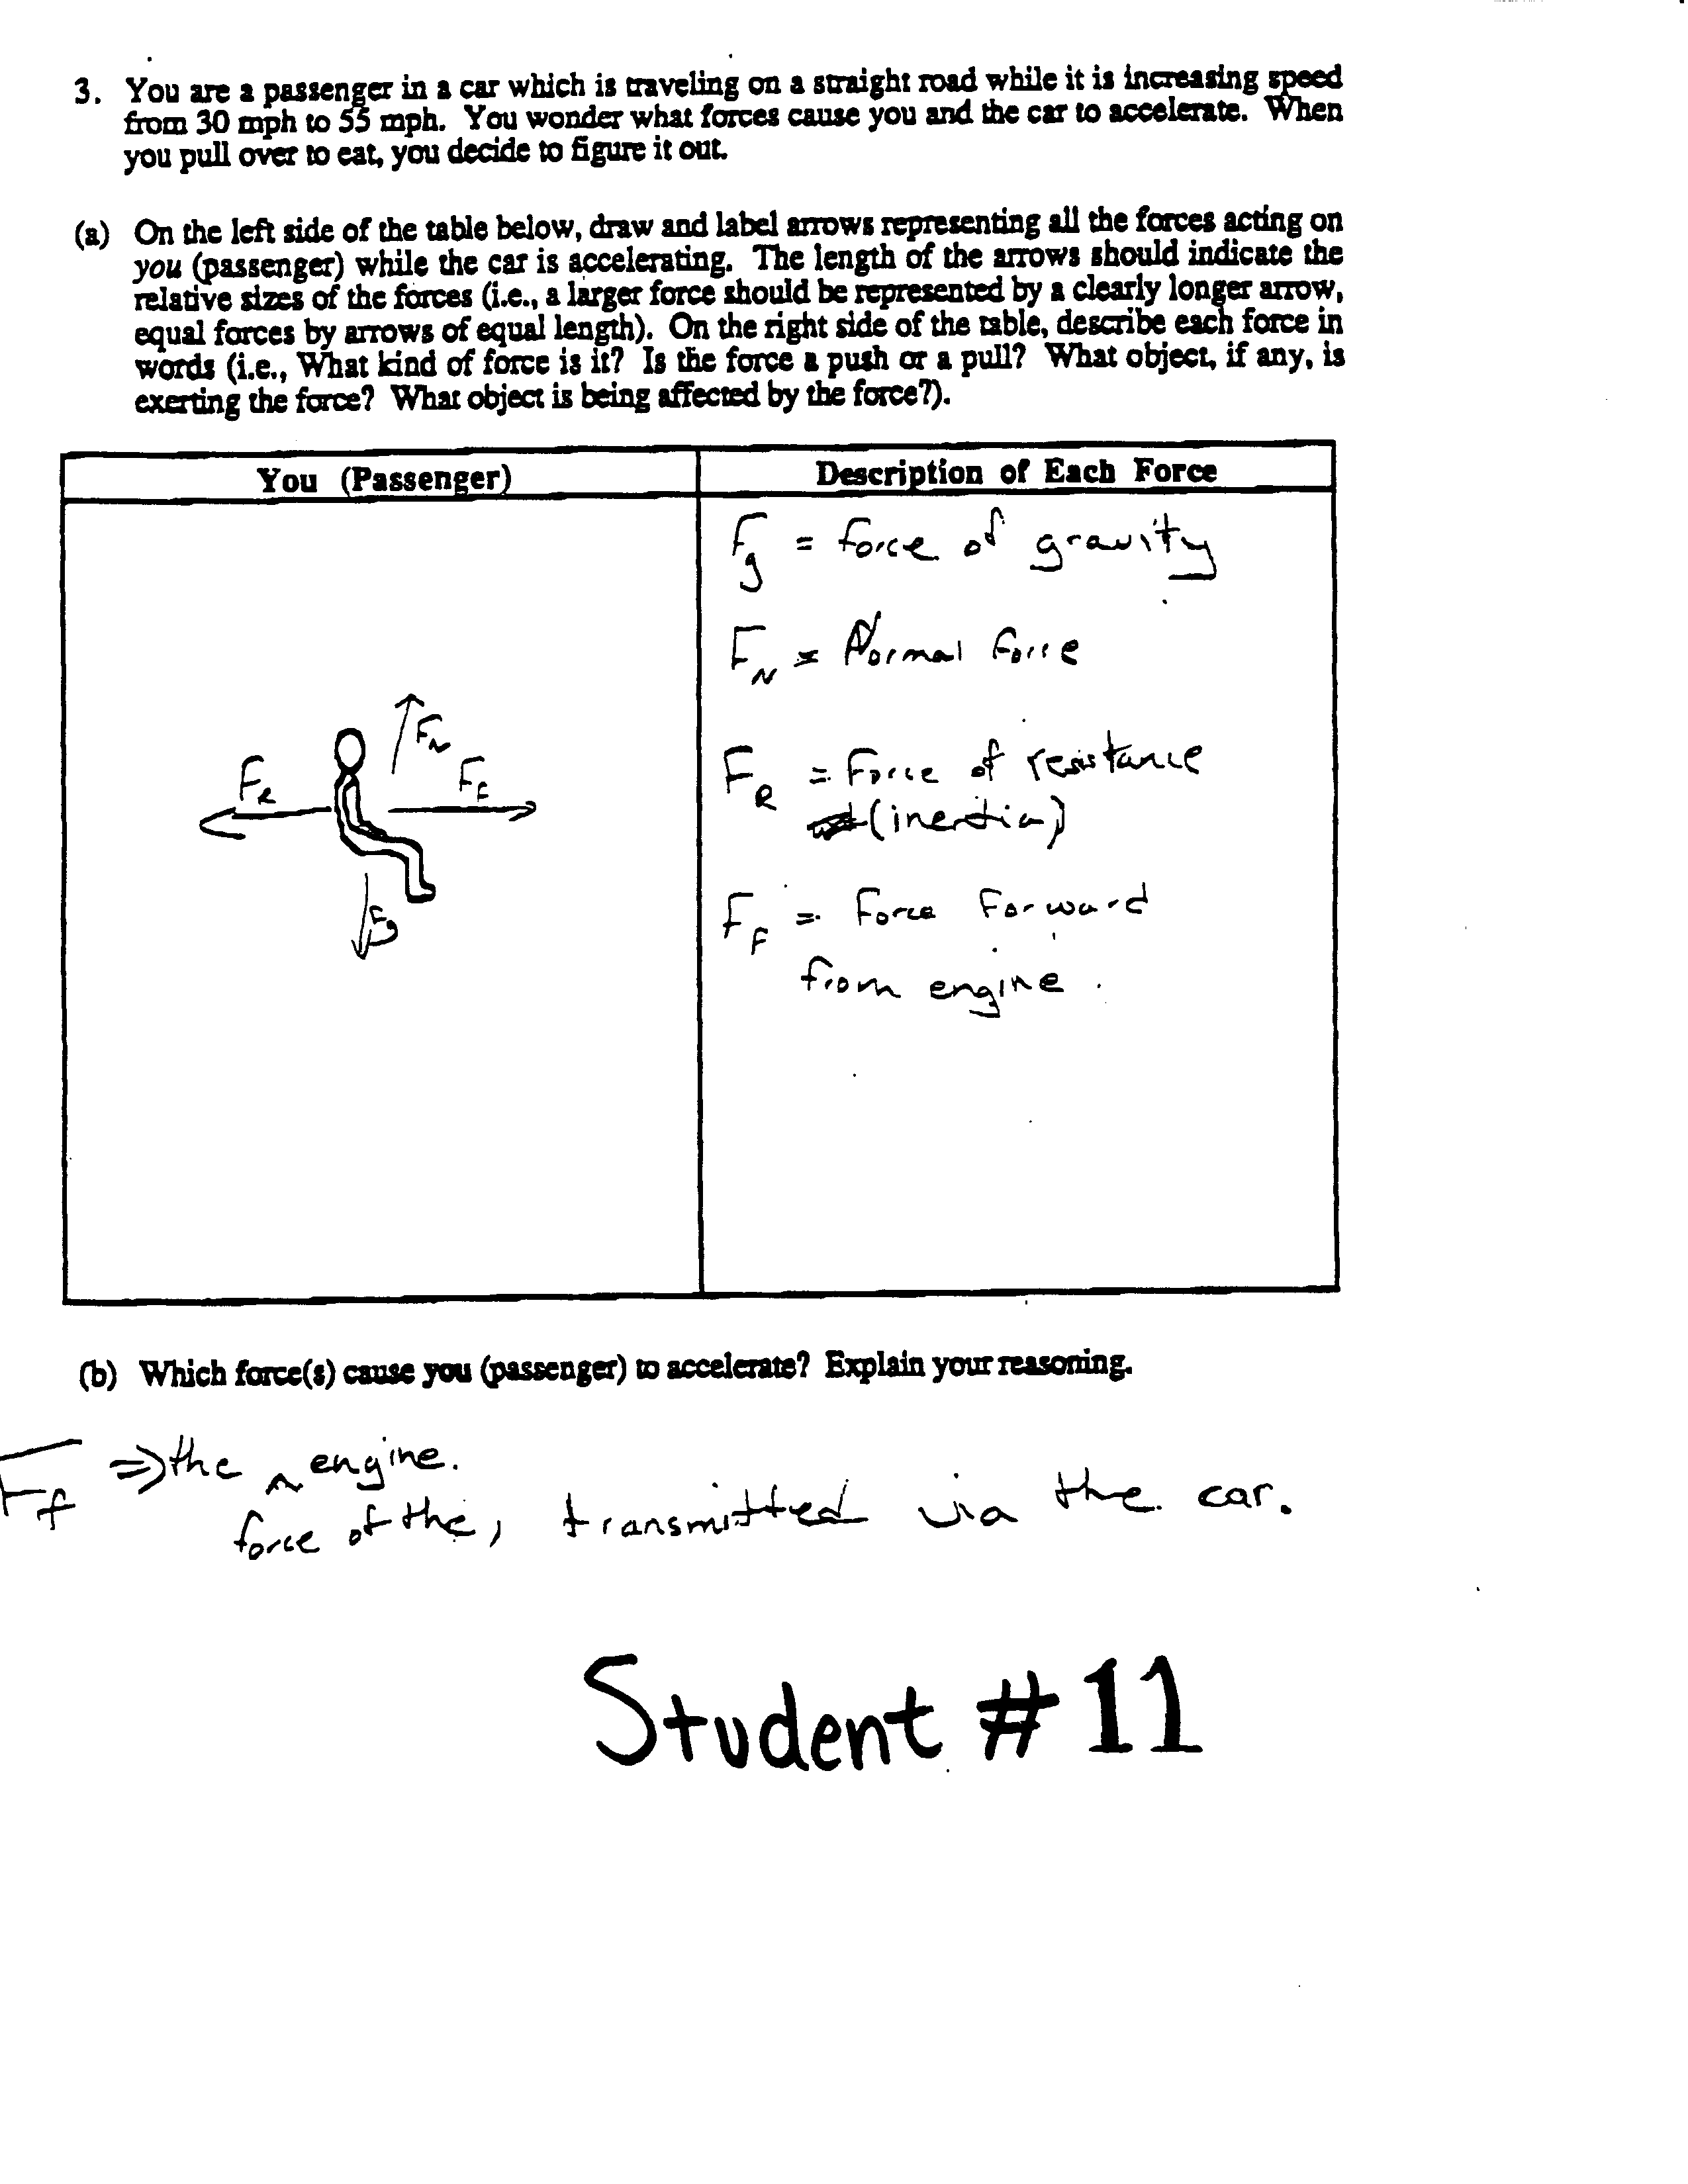 3. You are a passenger in a car which is traveling on a straight road while it is increasing speed
from 30 mph to 55 mph. You wonder what forces cause you and the car to accelerate. When
you pull over to eat, you decide to figure it out.
(a) On the left side of the table below, draw and label arrows representing all the forces acting on
you (passenger) while the car is accelerating. The length of the arrows should indicate the
relative sizes of the forces (i.e., a larger force should be represented by a clearly longer arrow,
equal forces by arrows of equal length). On the right side of the table, describe each force in
words (i.e., What kind of force is it? Is the force a push or a pull? What object, if any, is
exerting the force? What object is being affected by the force?).
You (Passenger)
FN
FR
FF
Fg
Description of Each Force
Fg = force of gravity
FN = Normal force
FR = Force of resistance
(inertia)
FF = Force Forward
from engine.
(b) Which force(s) cause you (passenger) to accelerate? Explain your reasoning.
Ff ⇒ the ^ engine.
force of the, transmitted via the car.
Student # 11